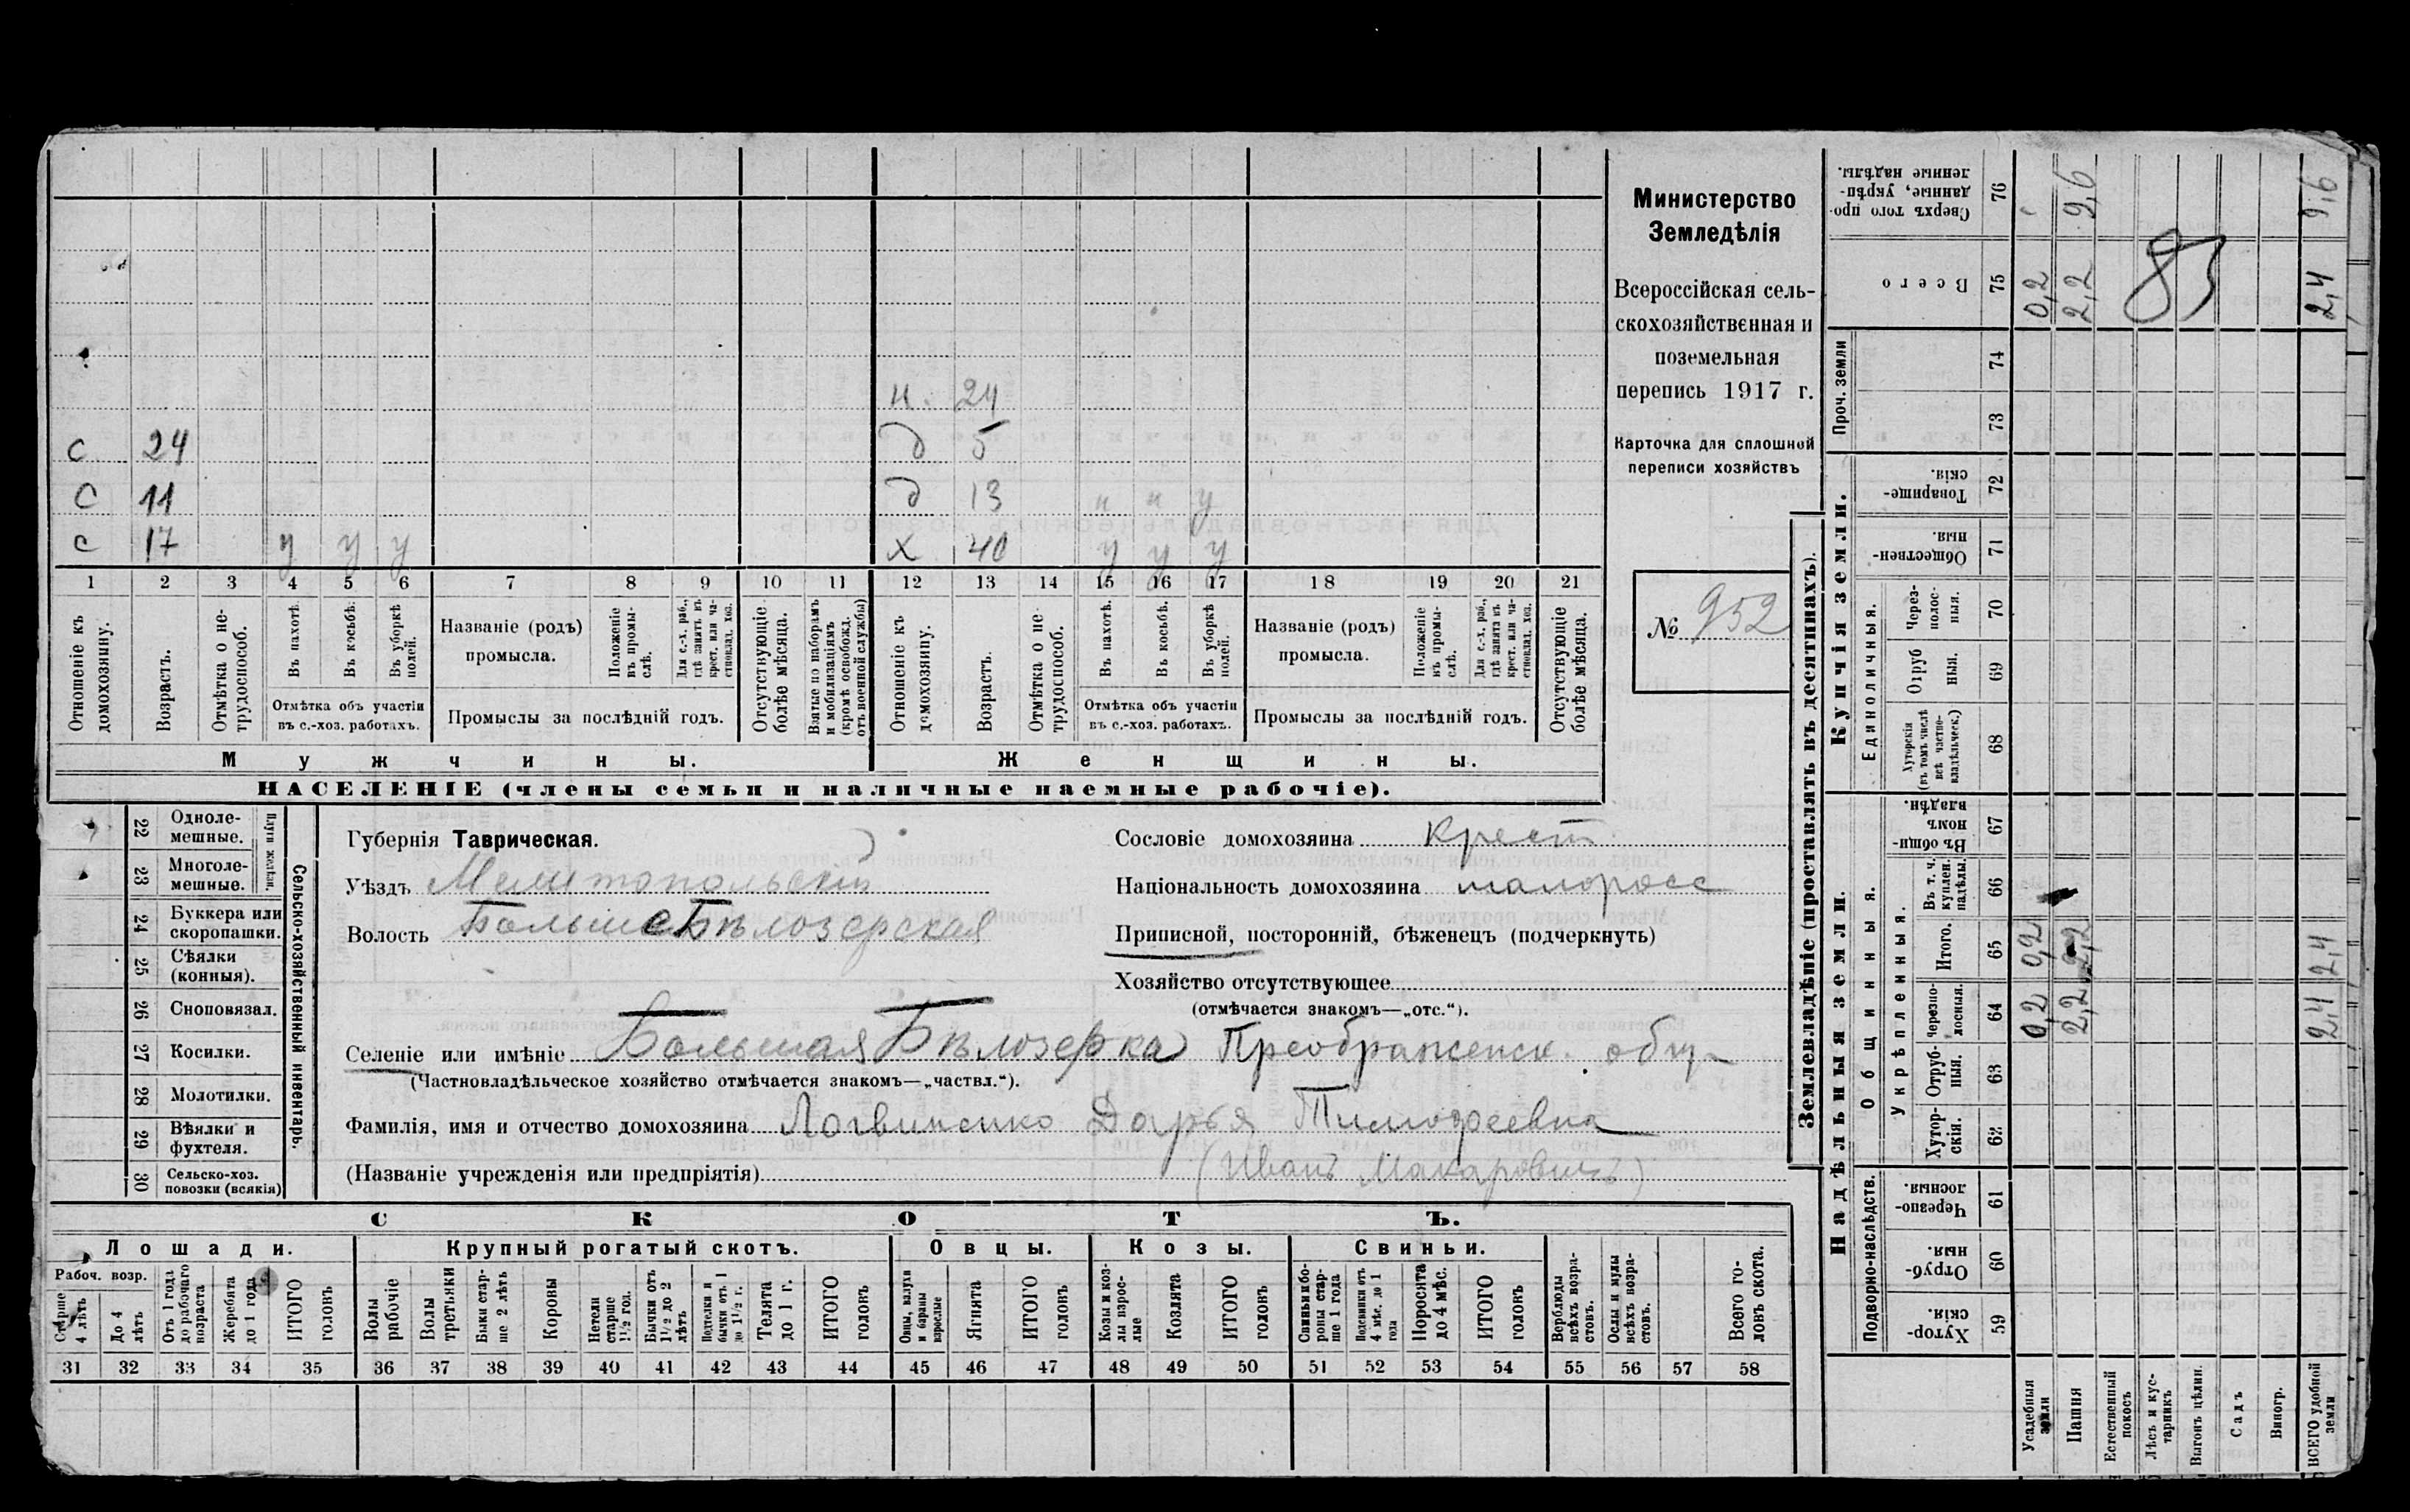 Министерство
Земледѣлія
Всероссійская сель-
скохозяйственная и
поземельная
перепись 1917 г.
Карточка для сплошной
переписи хозяйствъ
№ 952
н. 24
с 24 д 5
с 11 д 13 н н у
с 17 у у у х 40 у у у
1 2 3 4 5 6 7 8 9 10 11 12 13 14 15 16 17 18 19 20 21
Отношеніе къ домохозяину.
Возрастъ.
Отмѣтка о не-трудоспособ.
Въ пахотѣ.
Въ косьбѣ.
Въ уборкѣ полей.
Отмѣтка объ участіи
въ с.-хоз. работахъ.
Названіе (родъ)
промысла.
Положеніе въ промы-слѣ.
Для с.-х. раб., гдѣ занятъ въ крест. или ча-стновлад. хоз.
Промыслы за послѣдній годъ.
Отсутствующіе болѣе мѣсяца.
Взятые по наборамъ и мобилизаціямъ (кромѣ освобожд. отъ военной службы)
Отношеніе къ домохозяину.
Возрастъ.
Отмѣтка о не трудоспособ.
Въ пахотѣ.
Въ косьбѣ.
Въ уборкѣ полей.
Отмѣтка объ участіи
въ с.-хоз. работахъ.
Названіе (родъ)
промысла.
Положеніе въ промы-слѣ.
Для с.-х. раб., гдѣ занята въ крест. или ча-стновлад. хоз.
Промыслы за послѣдній годъ.
Отсутствующіе болѣе мѣсяца.
Мужчины. Женщины.
НАСЕЛЕНІЕ (члены семьи и наличные наемные рабочіе).
Сельско-хозяйственный инвентарь.
Плуги желѣзн.
22 Одноле-мешные.
23 Многоле-мешные.
24 Буккера или скоропашки.
25 Сѣялки (конныя).
26 Сноповязал.
27 Косилки.
28 Молотилки.
29 Вѣялки и фухтеля.
30 Сельско-хоз. повозки (всякія)
Губернія Таврическая.
Уѣздъ Мелитопольскій
Волость БольшеБѣлозерская
Сословіе домохозяина крест
Національность домохозяина малоросс
Приписной, посторонній, бѣженецъ (подчеркнуть)
Хозяйство отсутствующее
(отмѣчается знакомъ—„отс.“).
Селеніе или имѣніе Большая Бѣлозерка Преображенск. общ
(Частновладѣльческое хозяйство отмѣчается знакомъ—„частвл.“).
Фамилія, имя и отчество домохозяина Логвиненко Дарья Тимофеевна
(Названіе учрежденія или предпріятія) (Иванъ Макаровичъ)
СКОТЪ.
Лошади. Крупный рогатый скотъ. Овцы. Козы. Свиньи.
Рабоч. возр.
Старше 4 лѣтъ
До 4 лѣтъ
Отъ 1 года до рабочаго возраста
Жеребята до 1 года
ИТОГО головъ
Волы рабочіе
Волы третьяки
Быки стар-ше 2 лѣтъ
Коровы
Нетели старше 1½ год.
Бычки отъ 1½ до 2 лѣтъ
Подтелки и бычки отъ 1 до 1½ г.
Телята до 1 г.
ИТОГО головъ
Овцы, валухи и бараны взрослые
Ягнята
ИТОГО головъ
Козы и коз-лы взрос-лые
Козлята
ИТОГО головъ
Свиньи и бо-ровы стар-ше 1 года
Подсвинки отъ 4 мѣс. до 1 года
Поросята до 4 мѣс.
ИТОГО головъ
Верблюды всѣхъ возра-стовъ.
Ослы и мулы всѣхъ возра-стовъ.
Всего го-ловъ скота.
31 32 33 34 35 36 37 38 39 40 41 42 43 44 45 46 47 48 49 50 51 52 53 54 55 56 57 58
Землевладѣніе (проставлять въ десятинахъ).
Надѣльныя земли.
Купчія земли.
Проч. земли
Подворно-наслѣдств.
Общинныя.
Укрѣпленныя.
Единоличныя.
Сверхъ того про-данные, укрѣп-ленные надѣлы. 76 9,6 9,6
Всего 75 0,2 2,2 2,4
83
74
73
Товарище-скія. 72
Обществен-ныя. 71
Через-полос-ныя. 70
Отруб ныя. 69
Хуторскія (въ томъ числѣ всѣ частно-владѣльческ.) 68
Въ общи-номъ владѣн. 67
Въ т. ч. куплен. надѣлы. 66
Итого. 65 0,2 2,2 2,4
Черезпо-лосныя. 64 0,2 2,2 2,4
Отруб-ныя. 63
Хутор-скія. 62
Черезпо-лосныя. 61
Отруб-ныя. 60
Хутор-скія. 59
Усадебныя земли
Пашня
Естественный покосъ
Лѣсъ и кус-тарникъ
Выгонъ цѣлин.
Садъ
Виногр.
ВСЕГО удобной земли